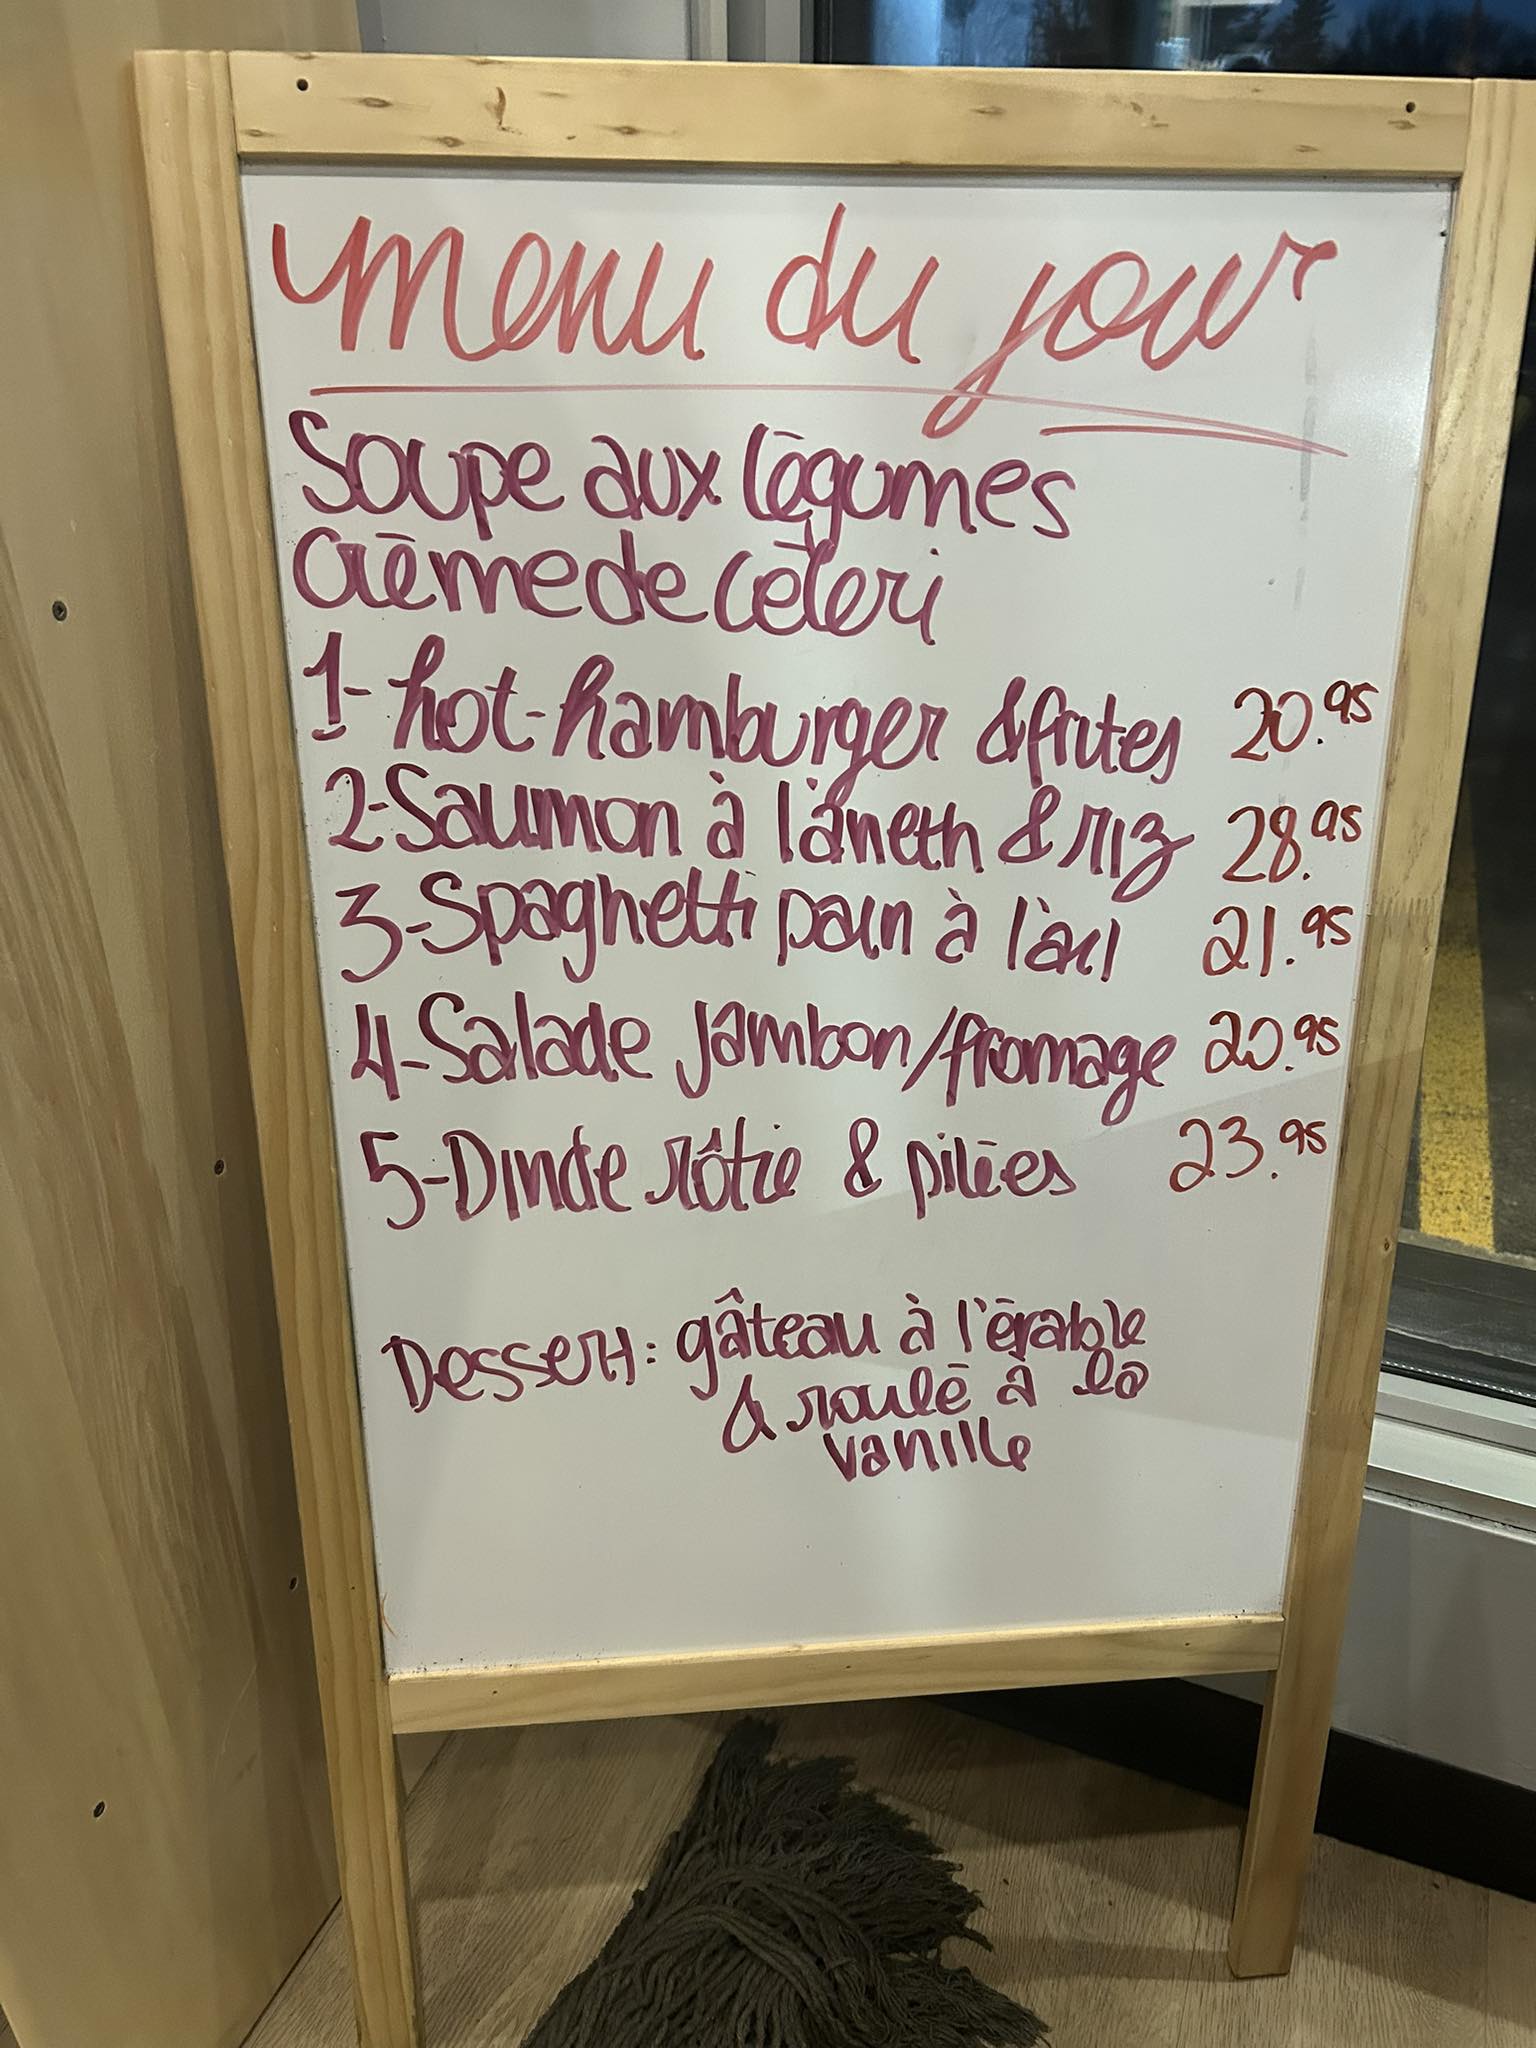 menu du jour
Soupe aux légumes
Crème de céleri
1- hot-hamburger & frites 20.95
2- Saumon à l'aneth & riz 28.95
3- Spaghetti pain à l'ail 21.95
4- Salade jambon/fromage 20.95
5- Dinde rôtie & pilées 23.95
Dessert: gâteau à l'érable
& roulé à la
vanille